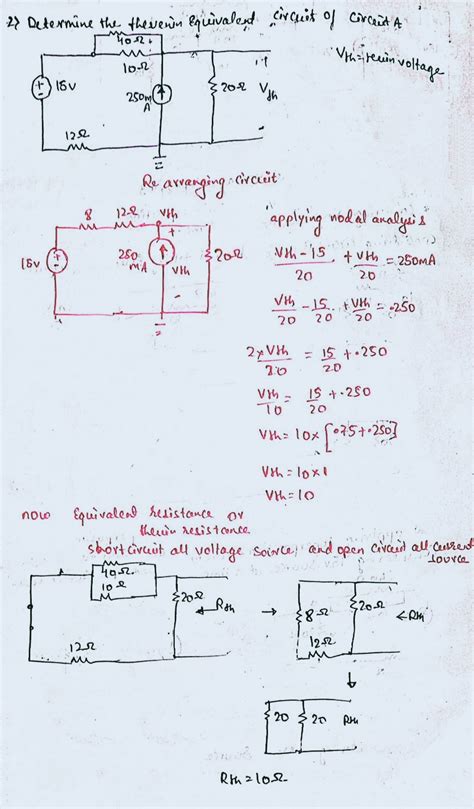 2) Determine the thevenin Equivalent circuit of Circuit A
40Ω
10Ω
15V
250m
A
20Ω
Vth
12Ω
Rearranging circuit
8
12Ω
Vth
+
15v
250
mA
Vth
20Ω
-
applying nodal analysis
Vth-15/20 + Vth/20 = 250mA
Vth/20 - 15/20 + Vth/20 = .250
2xVth/20 = 15/20 + .250
Vth/10 = 15/20 + .250
Vth = 10x[0.75+.250]
Vth = 10x1
Vth = 10
now Equivalent Resistance or
thevenin resistance
short circuit all voltage source, and open circuit all current
source
40Ω
10Ω
20Ω
Rth
12Ω
8Ω
20Ω
Rth
12Ω
20
20
Rth
Rth = 10Ω